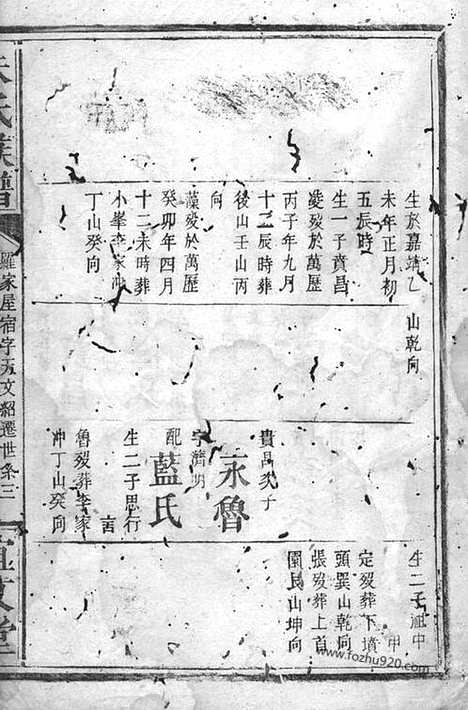 生於嘉靖乙
未年正月初
五辰時
生一子賁昌
浚歿於萬歷
丙子年九月
十二辰時葬
後山壬山丙
向
藻歿於萬歷
癸卯年四月
十二未時葬
小峯李家冲
丁山癸向
山乾向
賁昌次子
永魯
字濟明
配藍氏
生二子思行
言
魯歿葬李家
冲丁山癸向
生二子祖中
甲
定歿葬下墳
頭巽山乾向
張歿葬上首
園艮山坤向
氏族譜
羅家屋宿字五文紹遷世系三
www.fozhu920.com